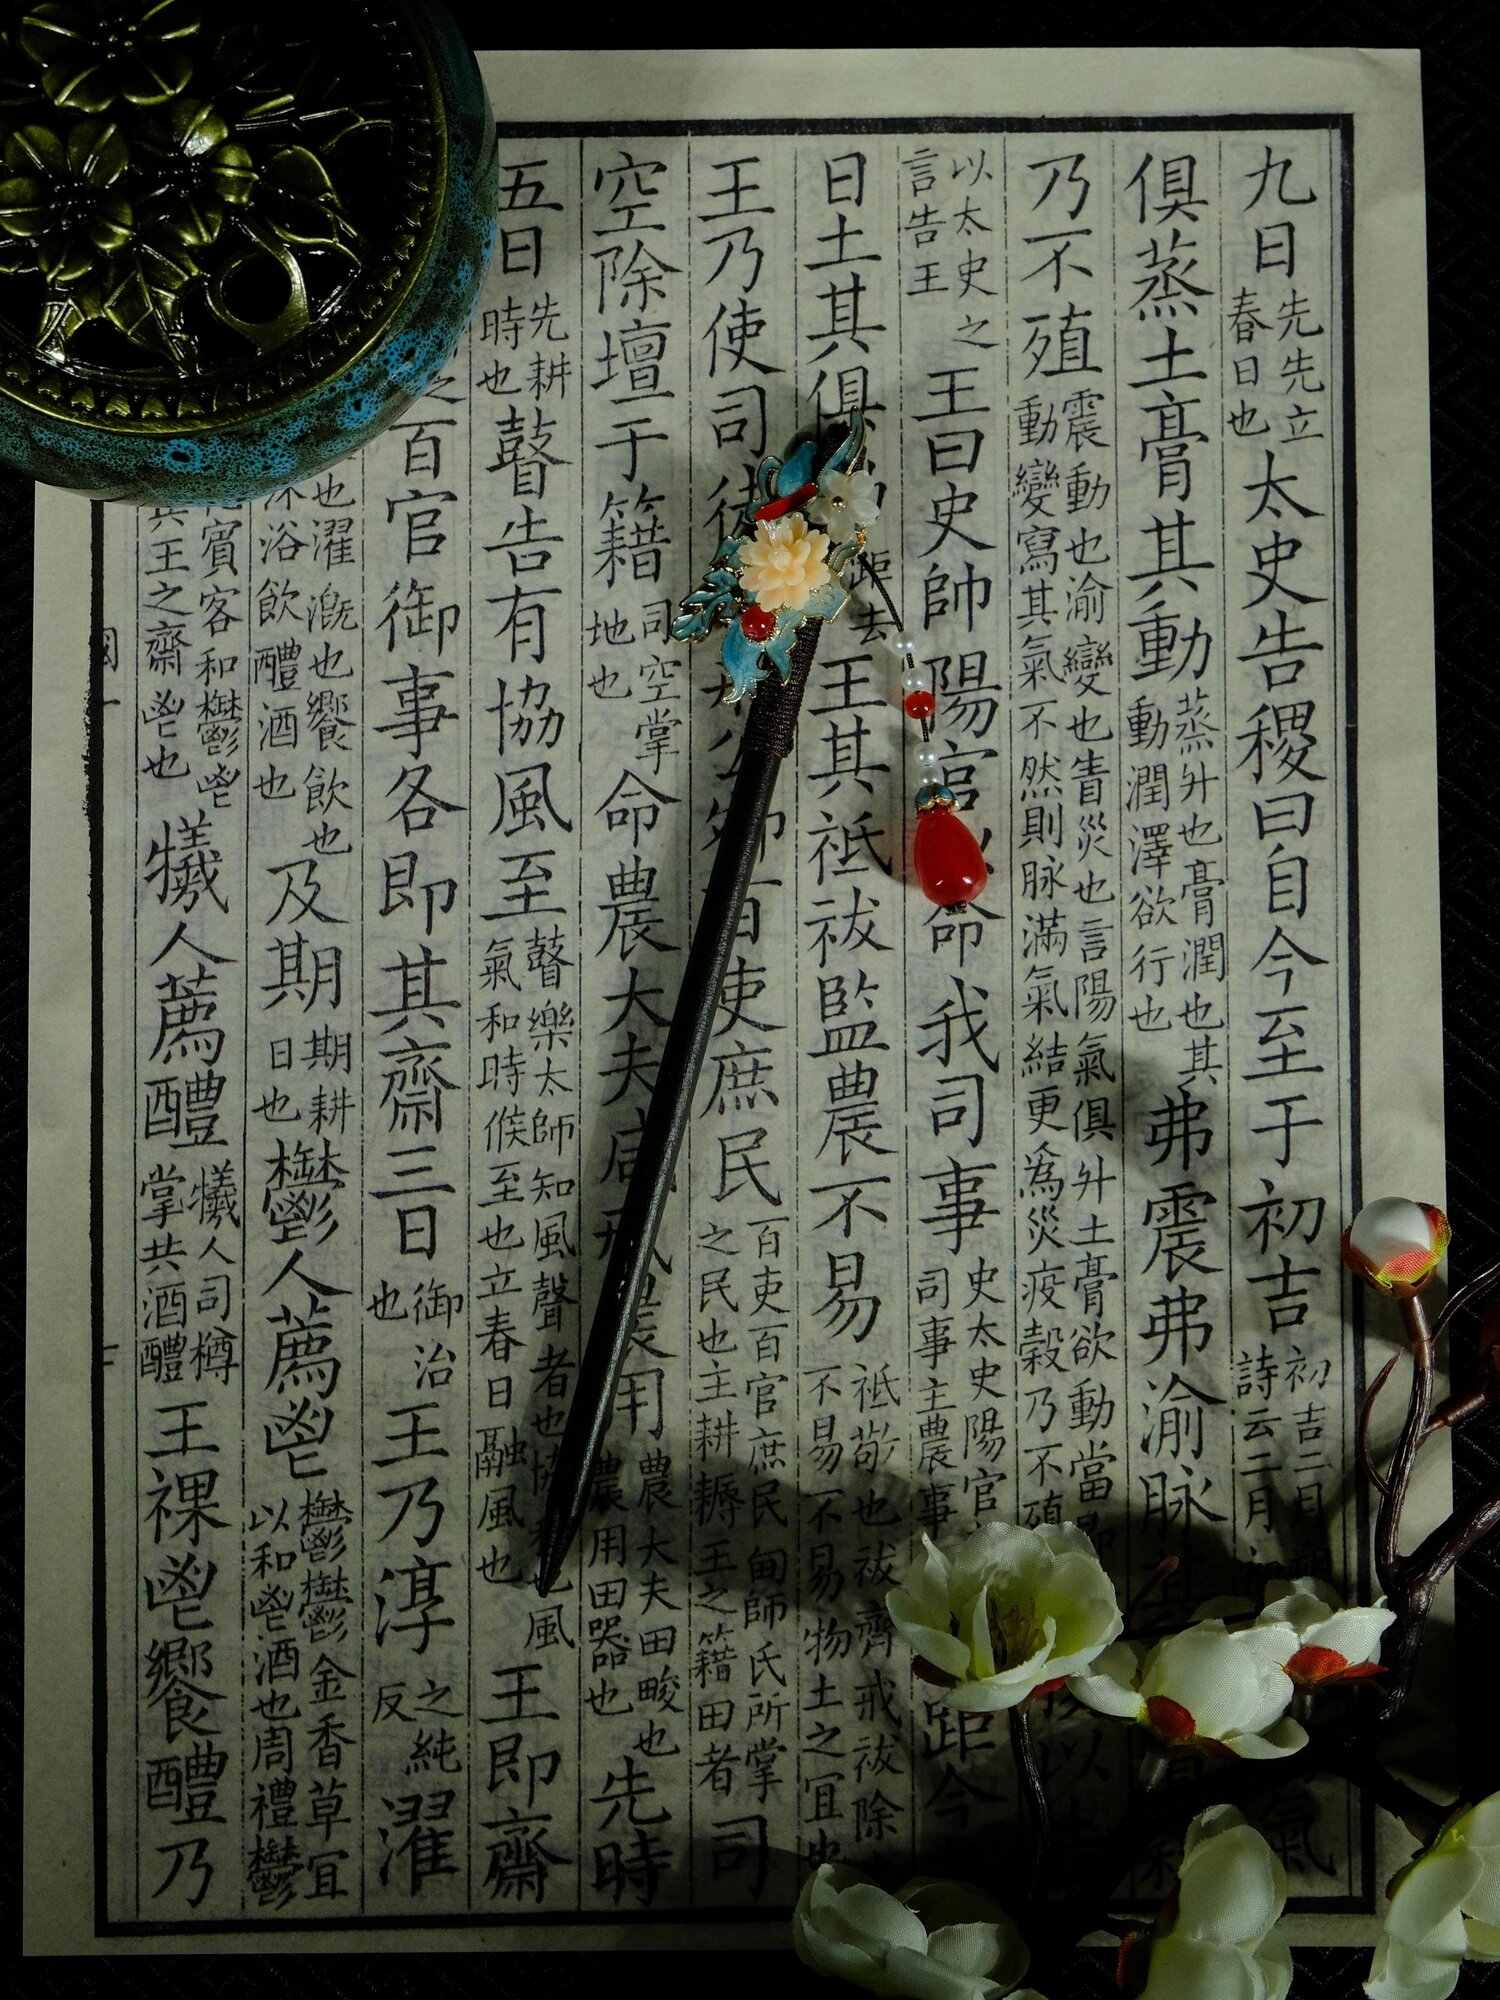 九日先先立春日也太史告稷曰自今至于初吉初吉二月朔詩云二月初氣
俱蒸土膏其動蒸升也膏潤也其動潤澤欲行也弗震弗渝脉
乃不殖震動也渝變也眚災也言陽氣俱升土膏欲動當即動變寫其氣不然則脉滿氣結更爲災疫穀乃不殖以
以太史之言告王王曰史帥陽官命我司事史太史陽官司事主農事距今
日土其俱距去王其祗祓監農不易祗敬也祓齊戒祓除不易不易物土之宜也
王乃使司徒百吏庶民百吏百官庶民甸師氏所掌之民也主耕耨王之籍田者司
空除壇于籍司空掌地也命農大夫咸用農大夫田畯也農用田器也先時
五日先耕時也瞽告有協風至瞽樂太師知風聲者也風氣和時候至也立春日融風也王即齋
之百官御事各即其齋三日御治也王乃淳之純反濯
也濯溉也饗飲也沐浴飲醴酒也及期期耕日也鬱人薦鬯鬱鬱金香草宜以和鬯酒也周禮鬱
賓客和鬱鬯共王之齋鬯也犧人薦醴犧人司樽掌共酒醴王祼鬯饗醴乃